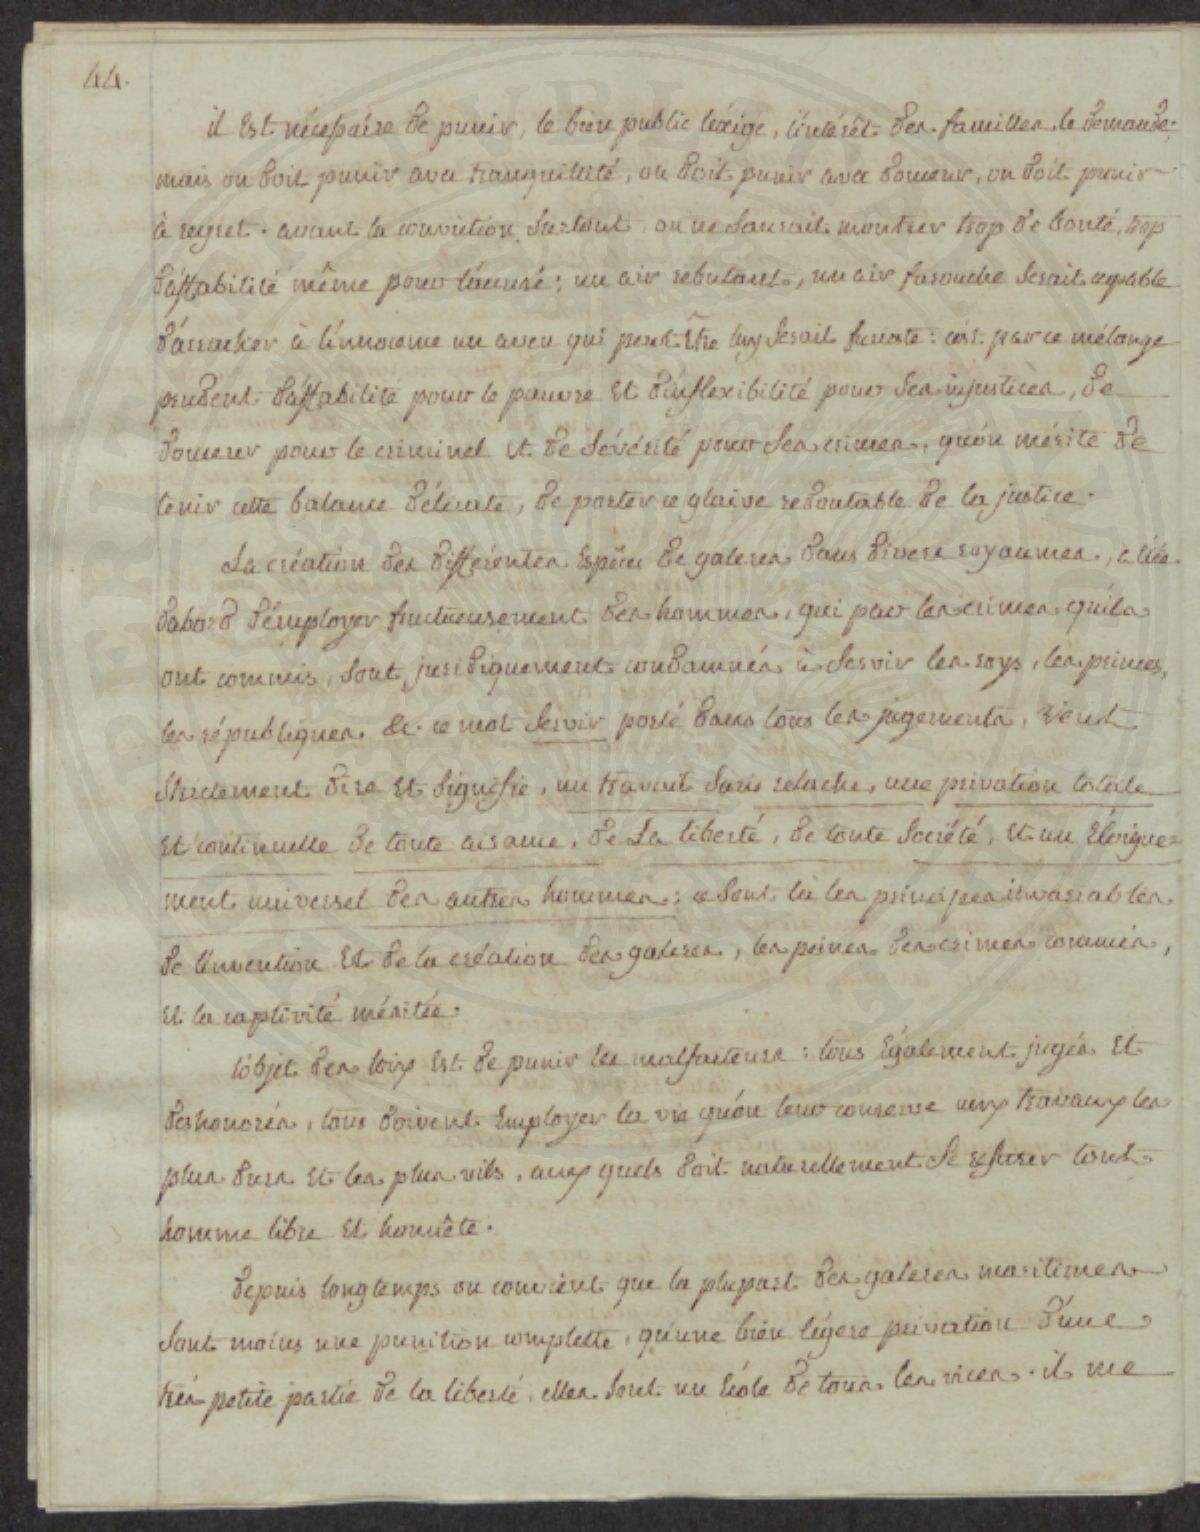 44.
il est nécessaire de punir, le bien public l'éxige, l'intérêt des familles le demande:
mais on doit punir avec tranquillité, on doit punir avec douceur, on doit punir
à regret. avant la conviction surtout, on ne saurait montrer trop de bonté, trop
d'affabilité même pour l'accusé; un air rebutant, un air farouche serait capable
d'arracher à l'innocence un aveu qui peut être luy serait funeste: c'est par ce mélange
prudent d'affabilité pour le pauvre et d'inflexibilité pour ses injustices, de
douceur pour le criminel et de sévérité pour ses crimes, qu'on mérite de
tenir cette balance délicate, de porter ce glaive redoutable de la justice.
La création des différentes espèces de galeres dans divers royaumes, a été
d'abord d'employer fructueusement des hommes, qui pour les crimes qu'ils
ont commis, sont juridiquement condamnés à servir les roys, les princes,
les républiques &c. ce mot servir porté dans tous les jugements, veut
strictement dire et signifie, un travail sans relache, une privation totale
et continuelle de toute aisance, de la liberté, de toute société, et un éloigne=
ment universel des autres hommes: ce sont là les principes invariables
de l'invention et de la création des galeres, les peines des crimes commis,
et la captivité méritée.
l'objet des loix est de punir les malfaiteurs: tous également jugés et
deshonorés, tous doivent employer la vie qu'on leur conserve aux travaux les
plus durs et les plus vils, aux quels doit naturellement se refuser tout
homme libre et honnête.
depuis longtemps on convient que la plupart des galeres maritimes
sont moins une punition complette, qu'une bien légere privation d'une
très petite partie de la liberté, elles sont un école de tous les vices. il me